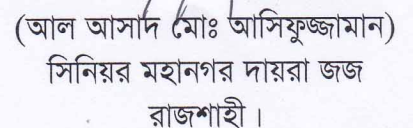 (আল আসাদ মোঃ আসিফুজ্জামান)
সিনিয়র মহানগর দায়রা জজ
রাজশাহী ।